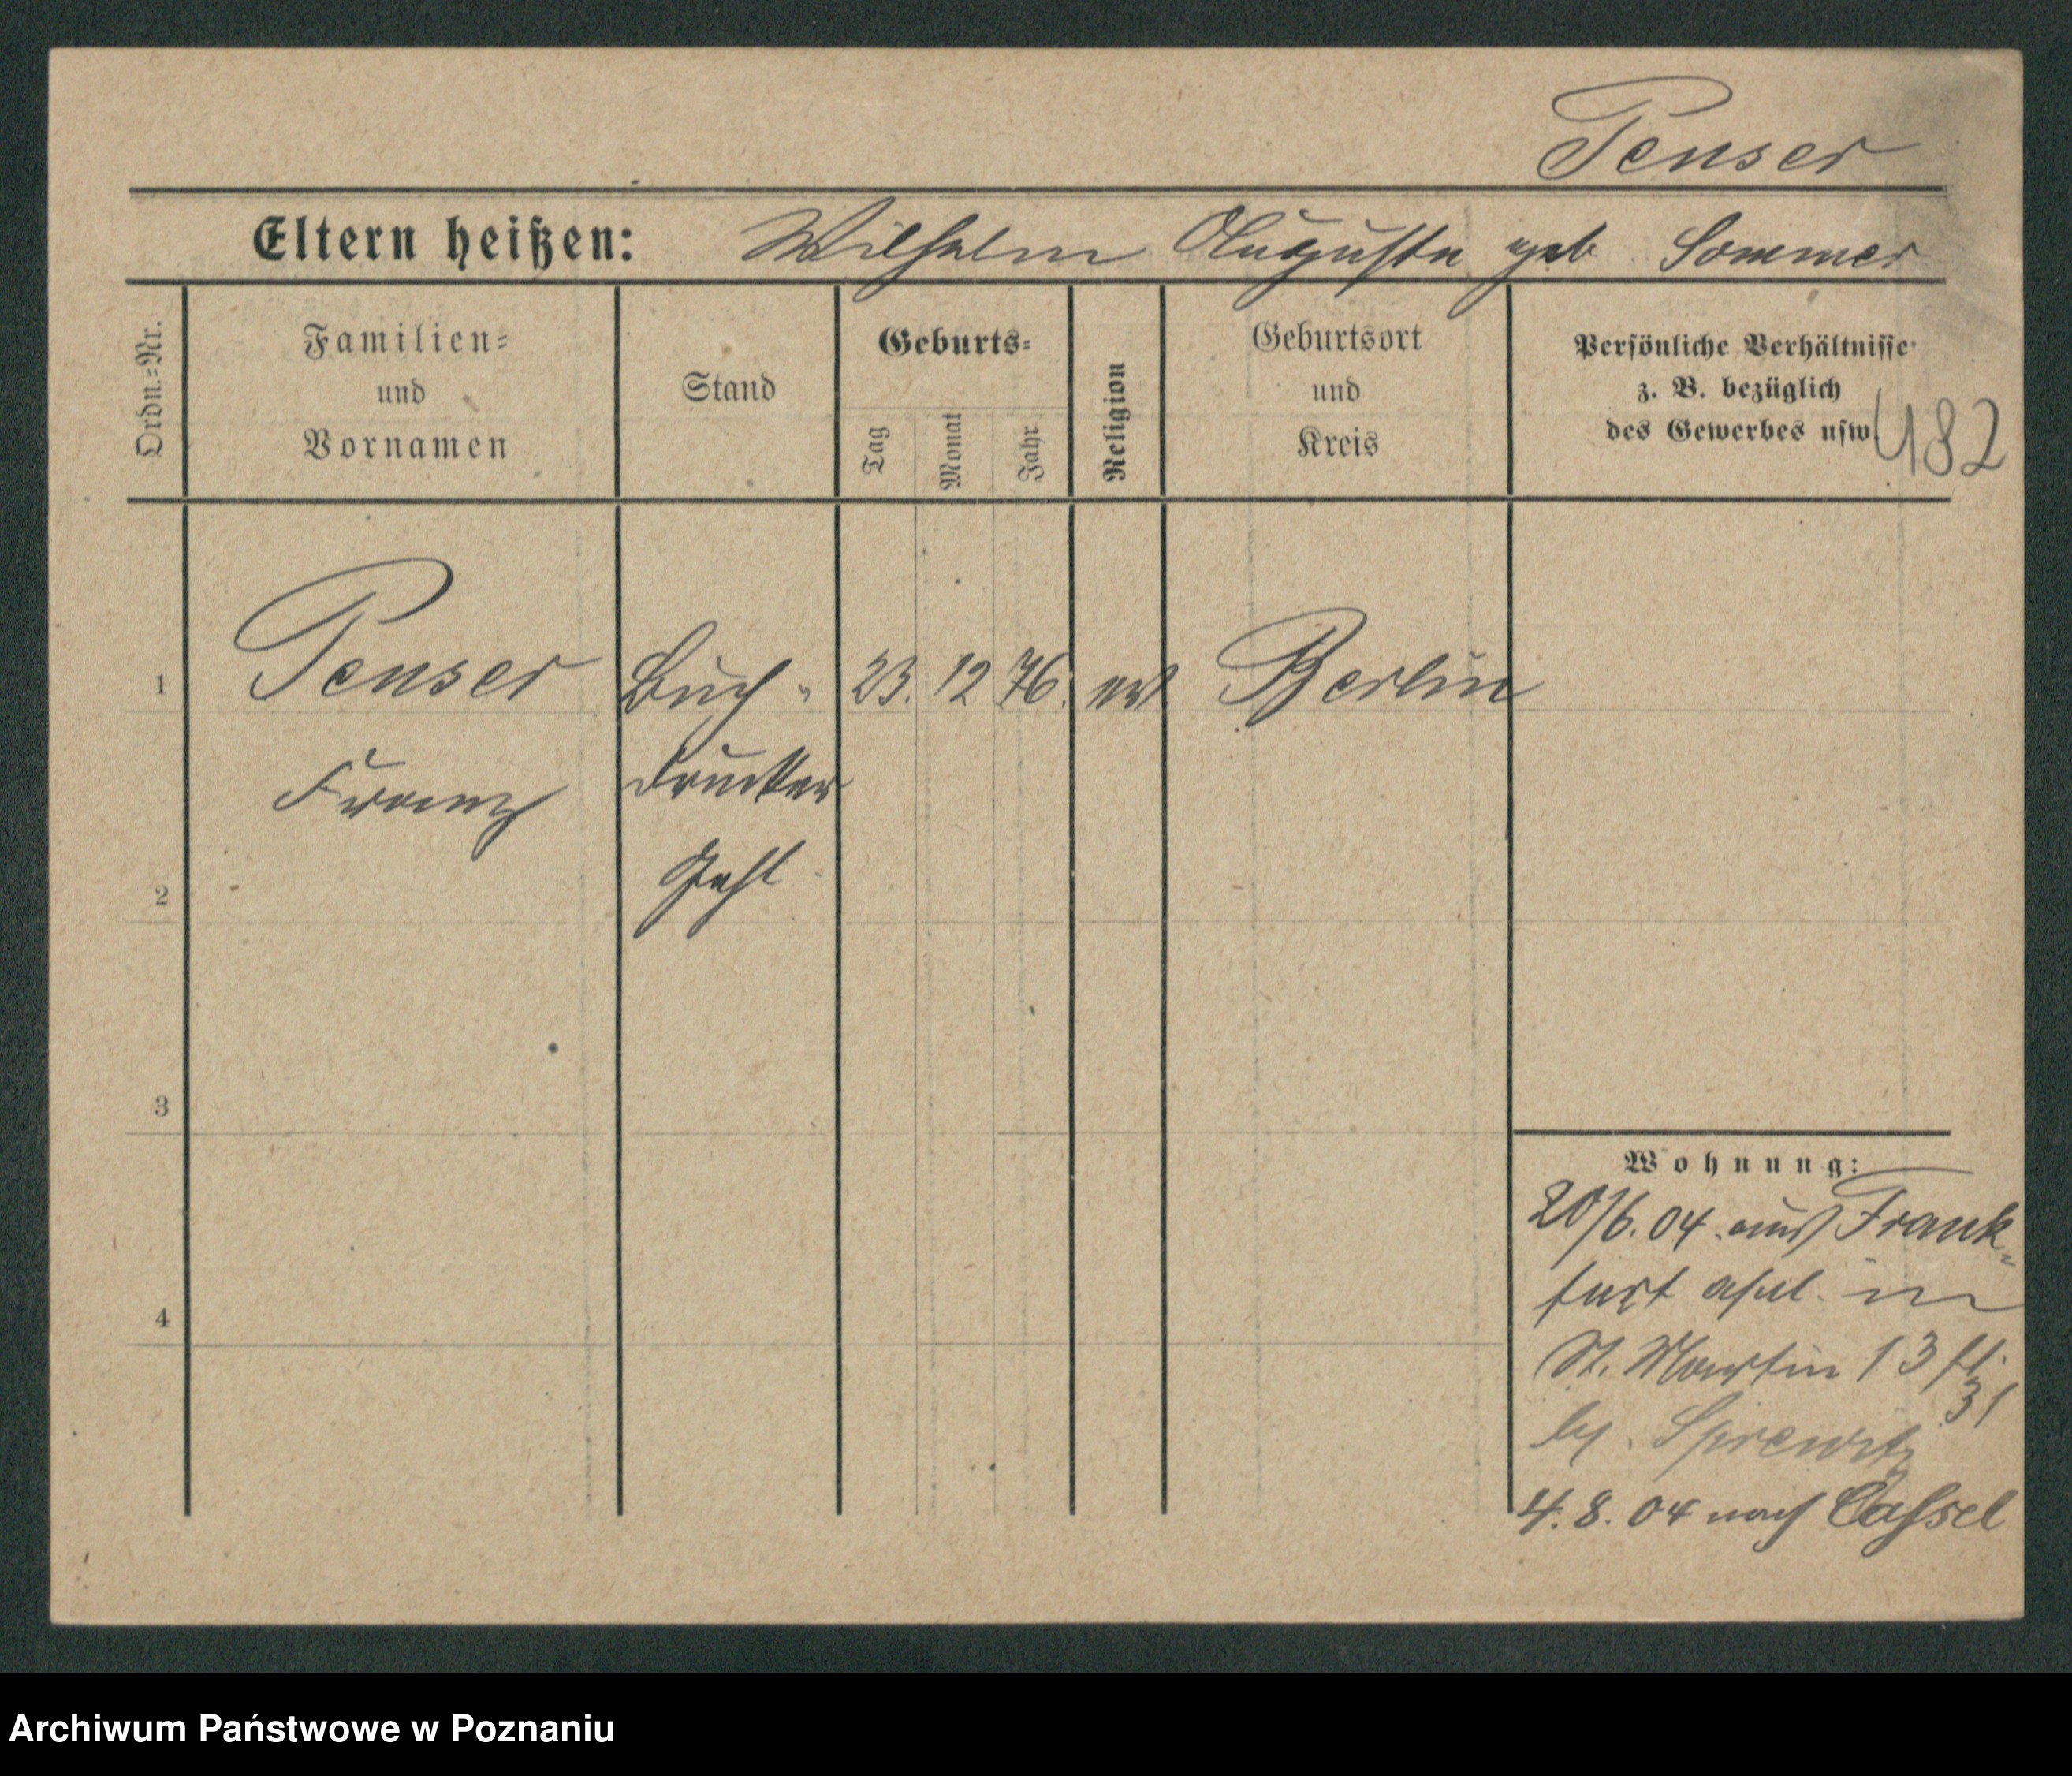 Penser
Eltern heißen: Wilhelm Auguste geb Sommer
Ordn.=Nr.
Familien=
und
Vornamen
Stand
Geburts=
Tag
Monat
Jahr
Religion
Geburtsort
und
Kreis
Persönliche Verhältnisse
z. B. bezüglich
des Gewerbes usw.
482
1 Penser Buch= 23. 12 76. ev Berlin
Franz drucker
2 Gehl
3
4
Wohnung:
20/6. 04. aus Frank=
furt in
St. Martin 13
31
by.
4. 8. 04 nach Cassel
Archiwum Państwowe w Poznaniu